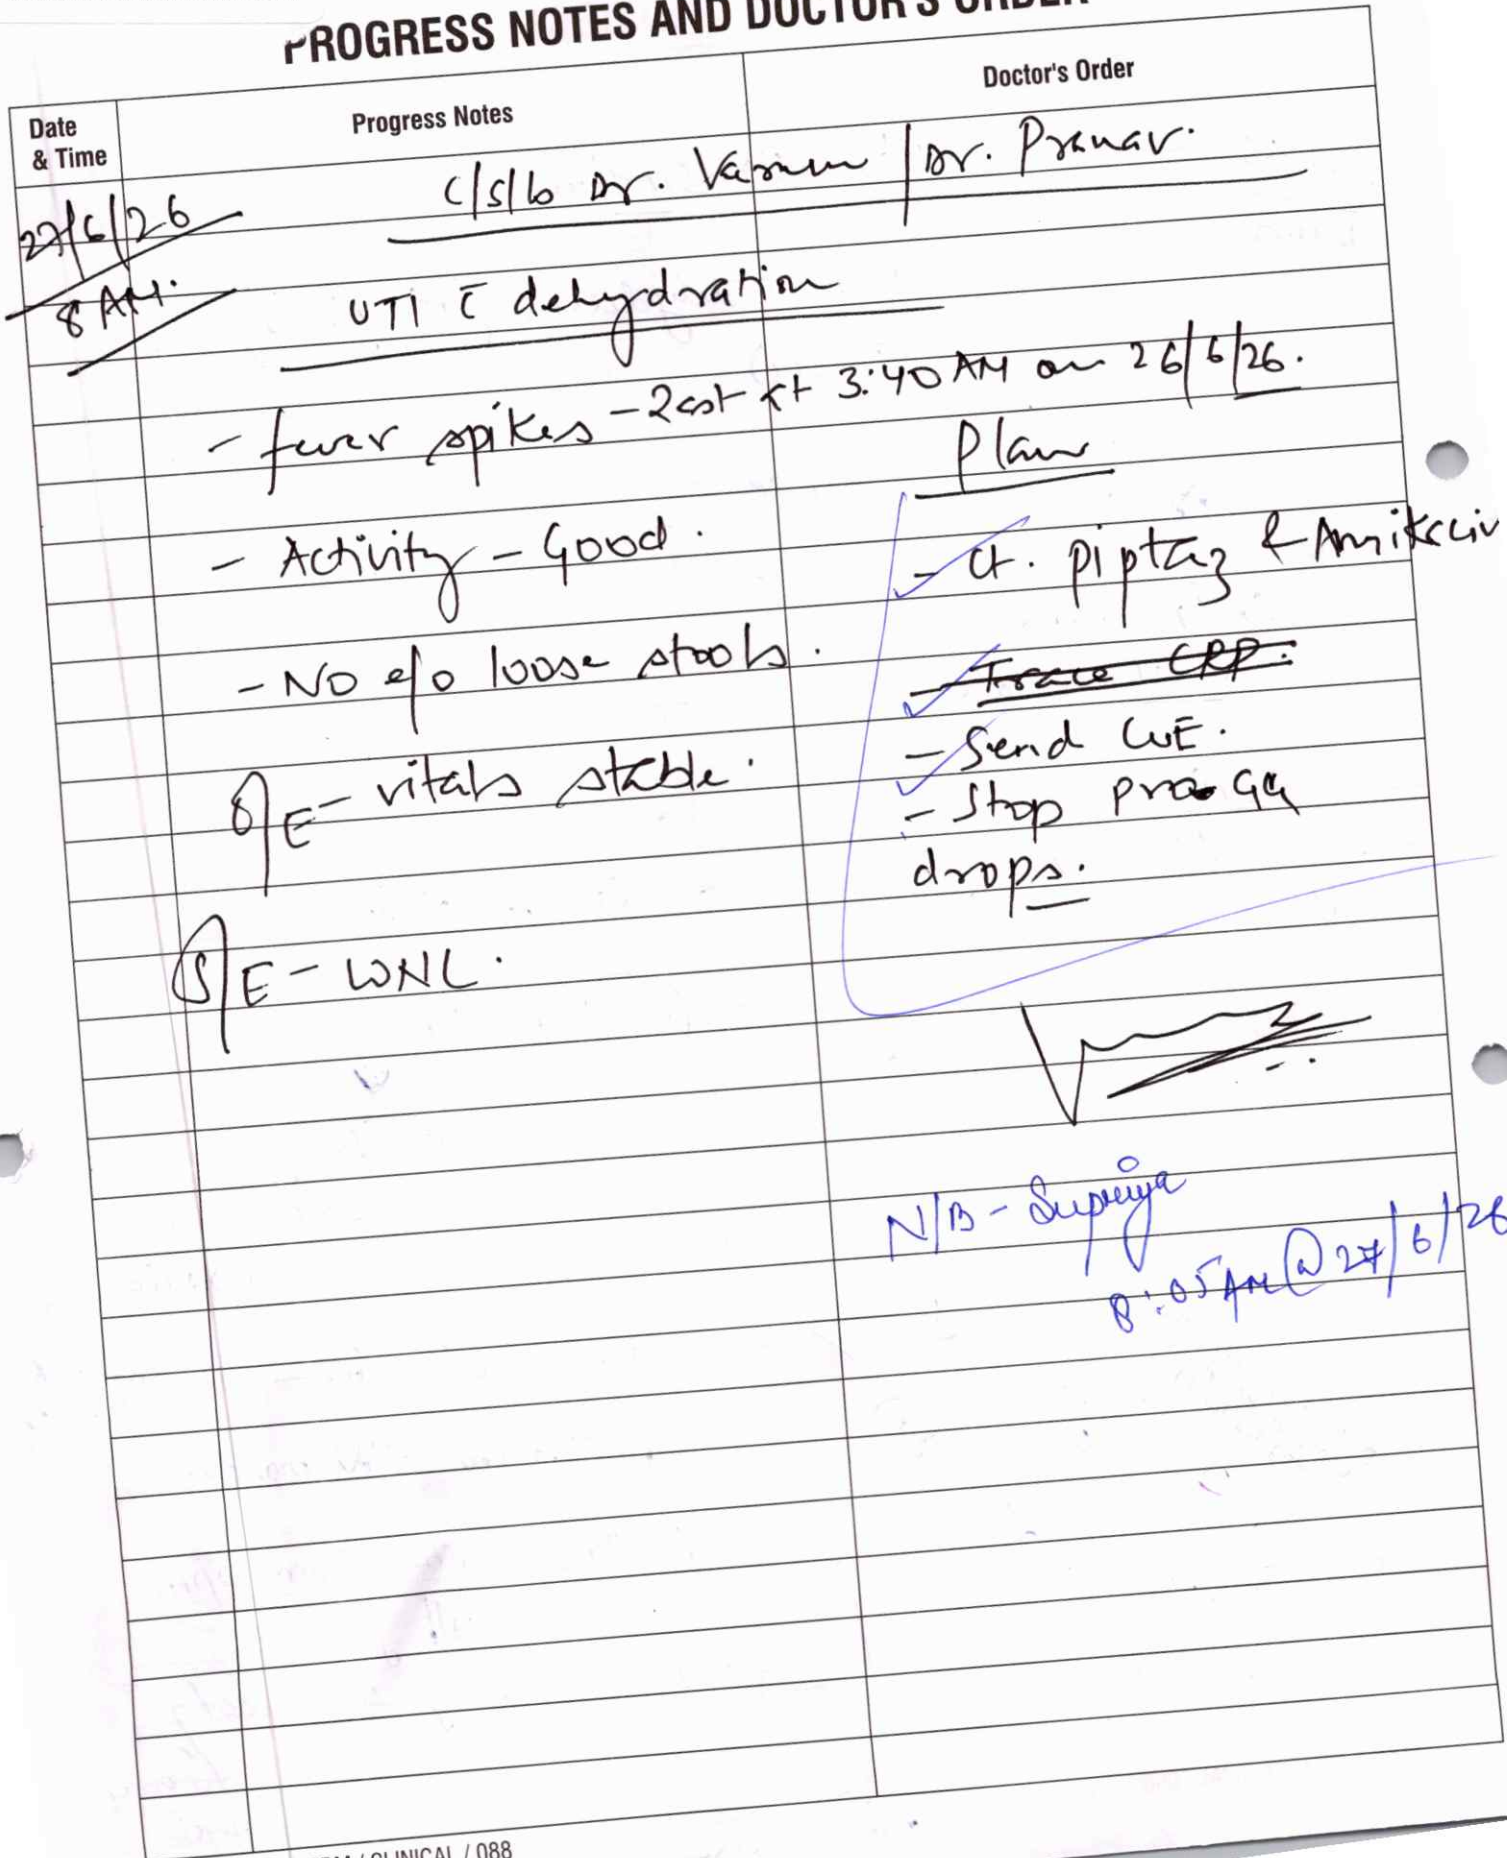 PROGRESS NOTES AND DOCTOR'S ORDER
Date & Time
Progress Notes
Doctor's Order
27/6/26
8 AM.
C/S/b Dr. Varun / Dr. Pranav.
UTI c̄ dehydration
- fever spikes - last at 3:40 AM on 26/6/26.
- Activity - Good.
- No e/o loose stools.
O/E - vitals stable.
S/E - WNL.
Plan
- Ct. piptaz & Amikacin
- Trace CRP.
- Send CUE.
- Stop pro GG
drops.
N/B - Supriya
8:05 AM @ 27/6/26
/ CLINICAL / 088